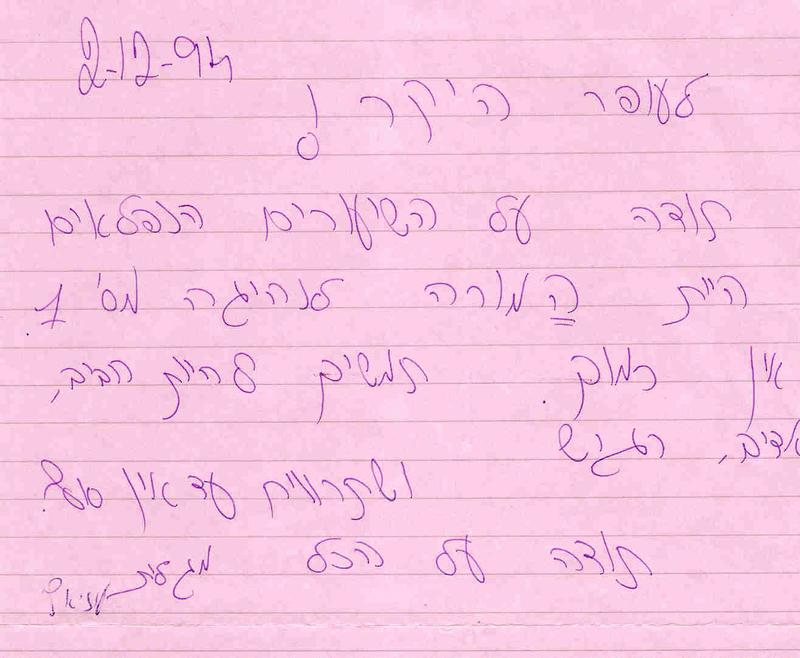 2-12-94
לעופר היקר!
תודה על השיעורים הנפלאים
היית המורה לנהיגה מס' 1.
אין כמוך. תמשיך להיות חביב,
אדיב, רגיש
ושתרוויח עד אין סוף.
תודה על הכל מגלית